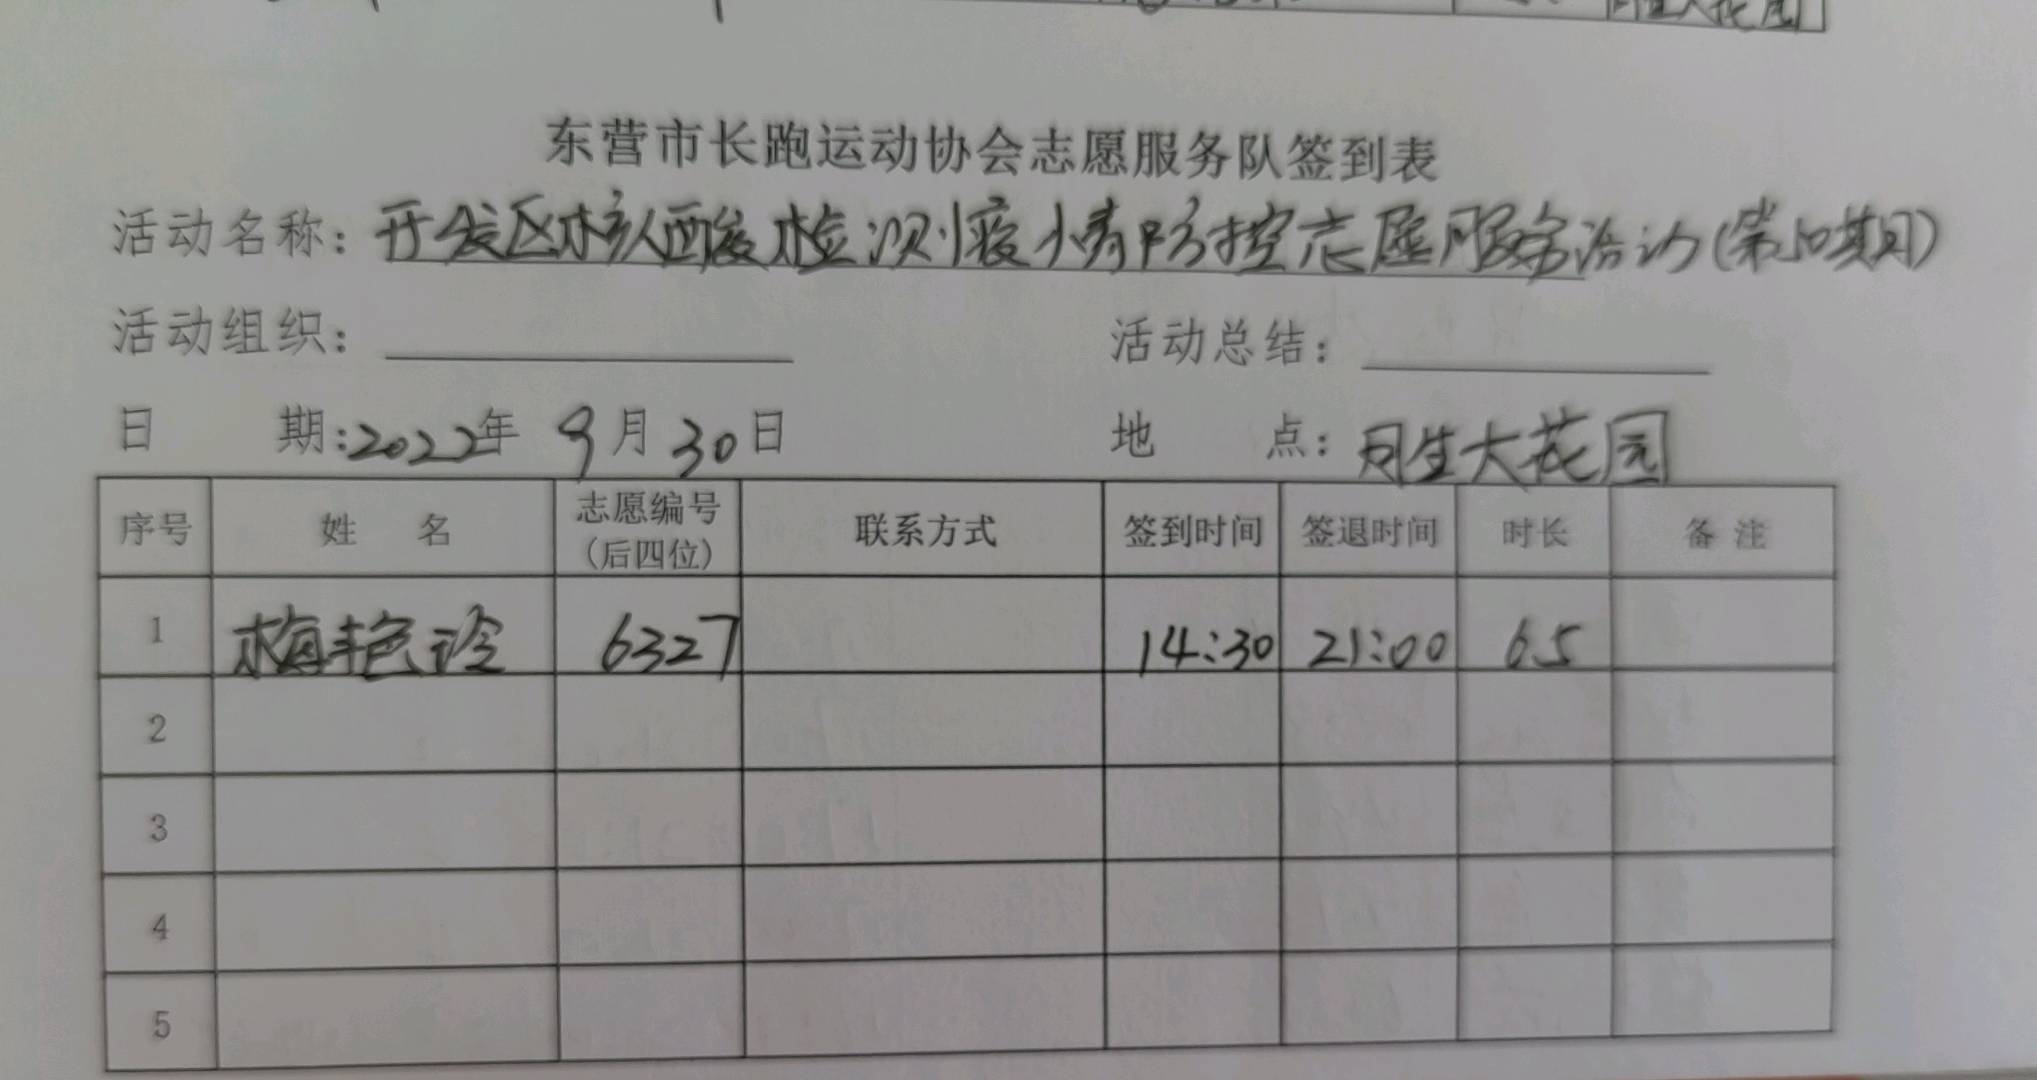 大花园
东营市长跑运动协会志愿服务队签到表
活动名称：开发区核酸检测疫情防控志愿服务活动(第50期)
活动组织：
活动总结：
日 期：2022年 9月30日
地 点：月生大花园
序号 姓 名 志愿编号(后四位) 联系方式 签到时间 签退时间 时长 备注
1 梅艳玲 6327 14:30 21:00 6.5
2
3
4
5